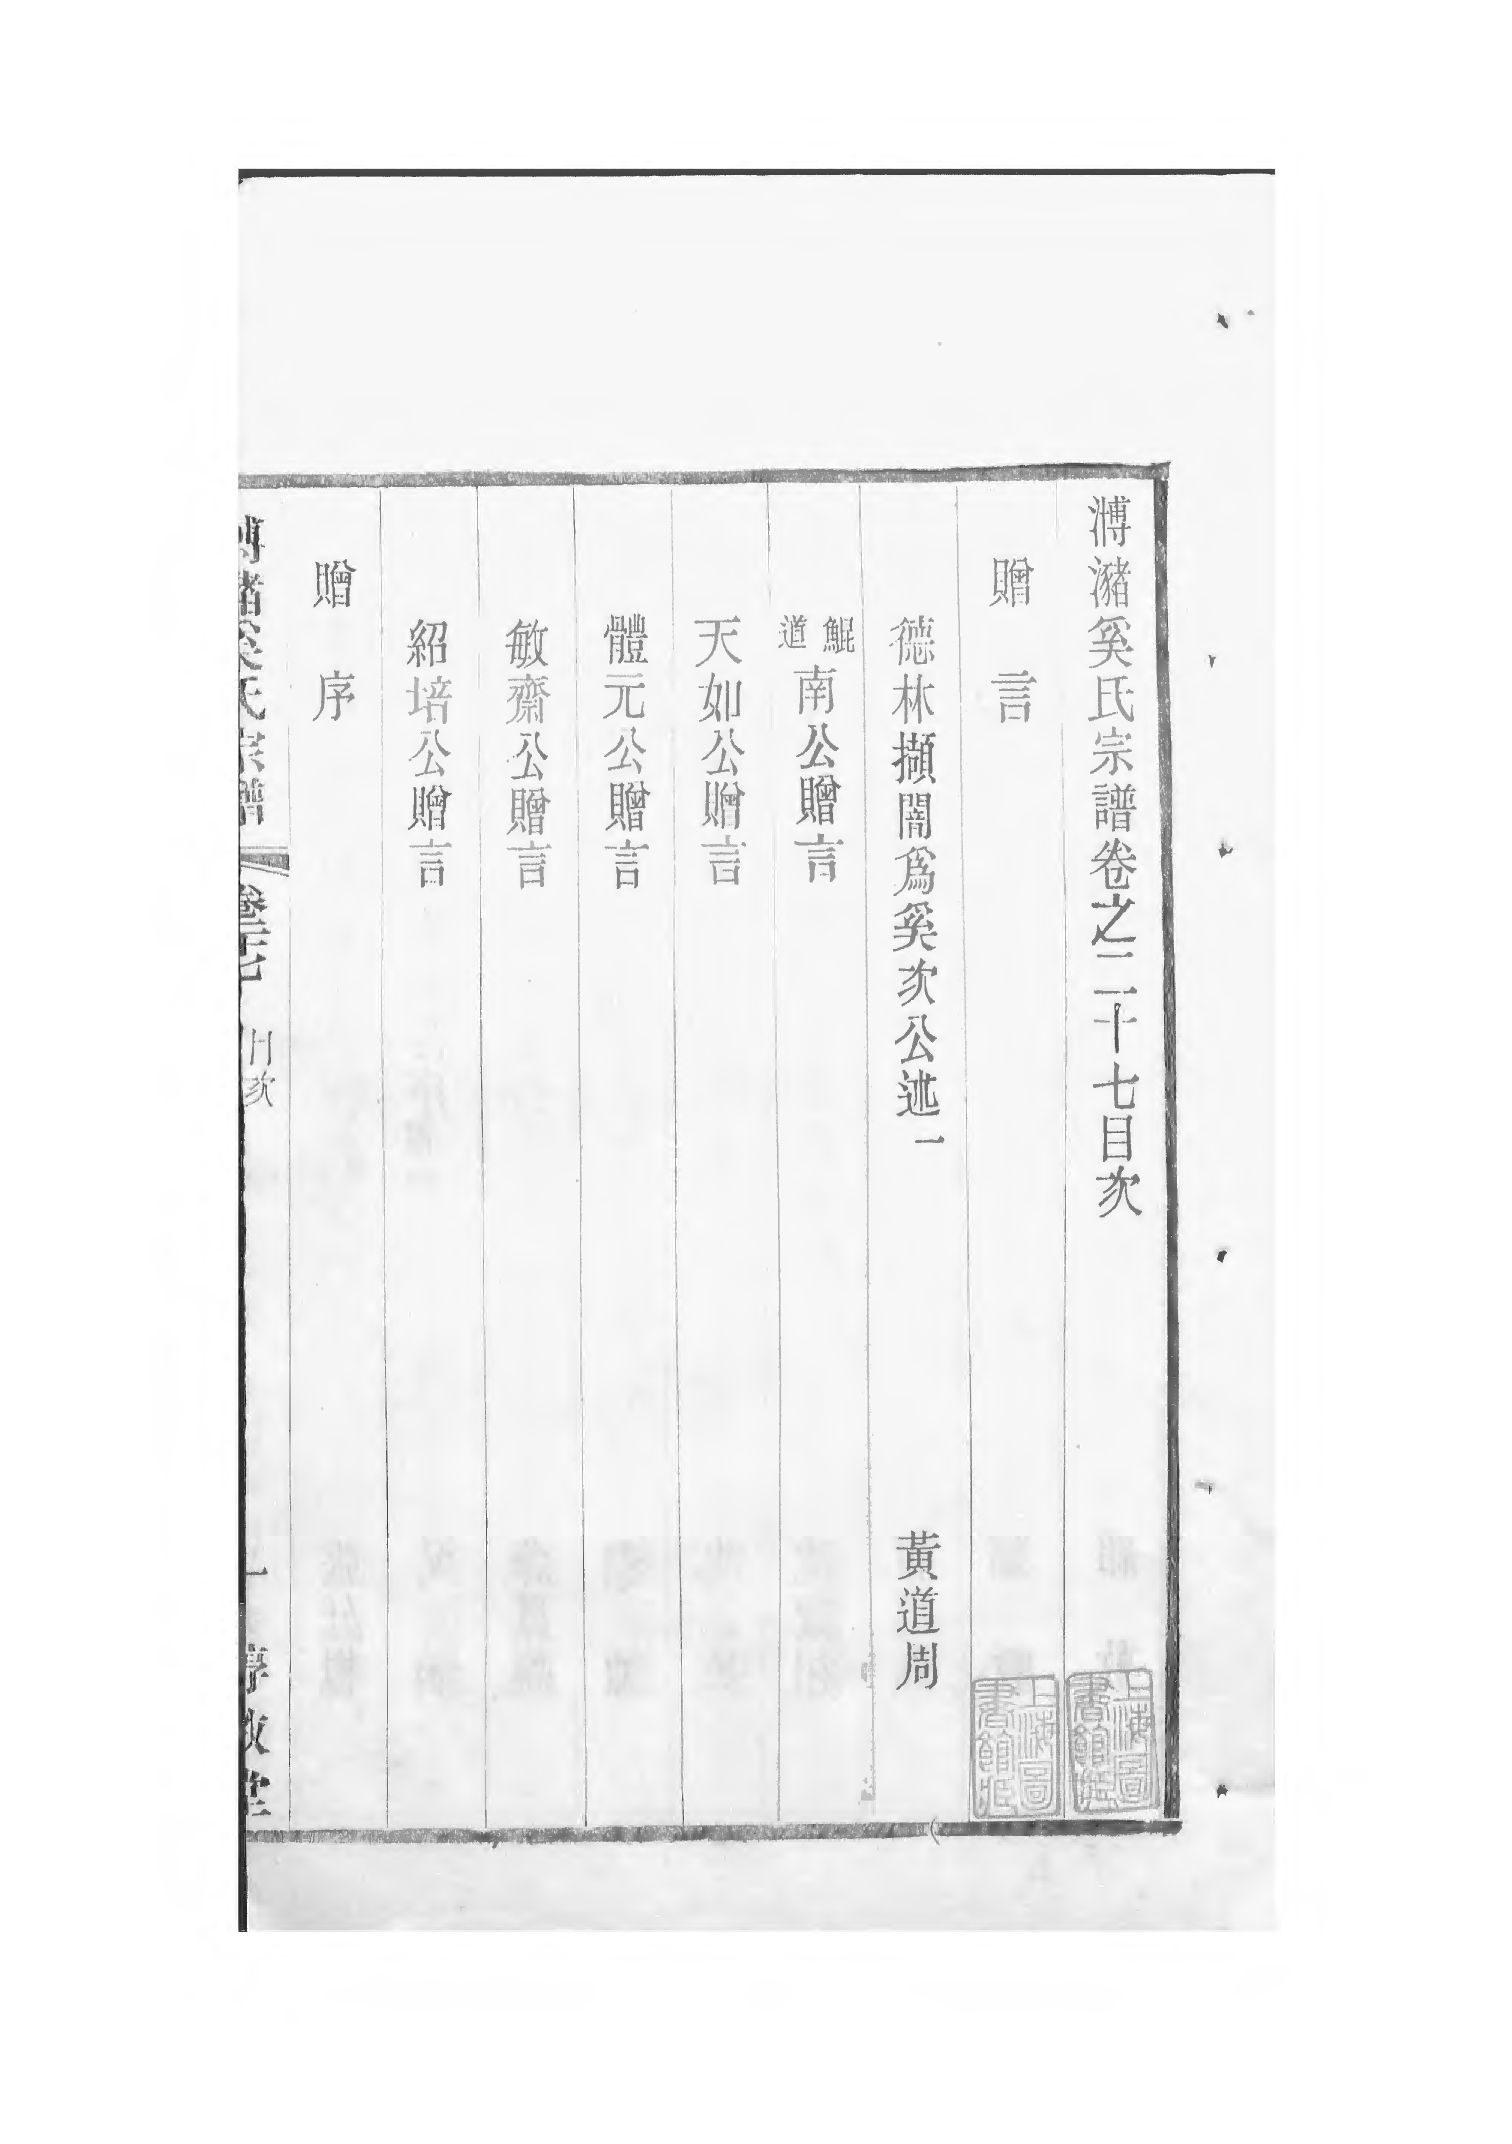 溥瀦奚氏宗譜卷之二十七目次
贈言
德林擷闇爲奚次公述一 黃道周
鯤道南公贈言
天如公贈言
體元公贈言
敏齋公贈言
紹培公贈言
贈序
溥瀦奚氏宗譜 卷二十七 目次 一 序敘堂
上海圖書館藏
上海圖書館藏